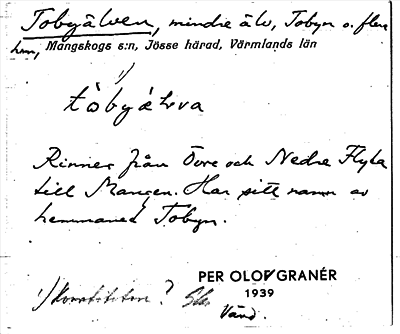 Tobyälven, mindre älv, Tobyn o. flera
hmn, Mangskogs s:n, Jösse härad, Värmlands län
1)
tòbyä̀lva
Rinner från Övre och Nedre Flyta
till Mangen. Har sitt namn av
hemmanet Tobyn.
PER OLOF GRANÉR
1939
1)
?
Värd.